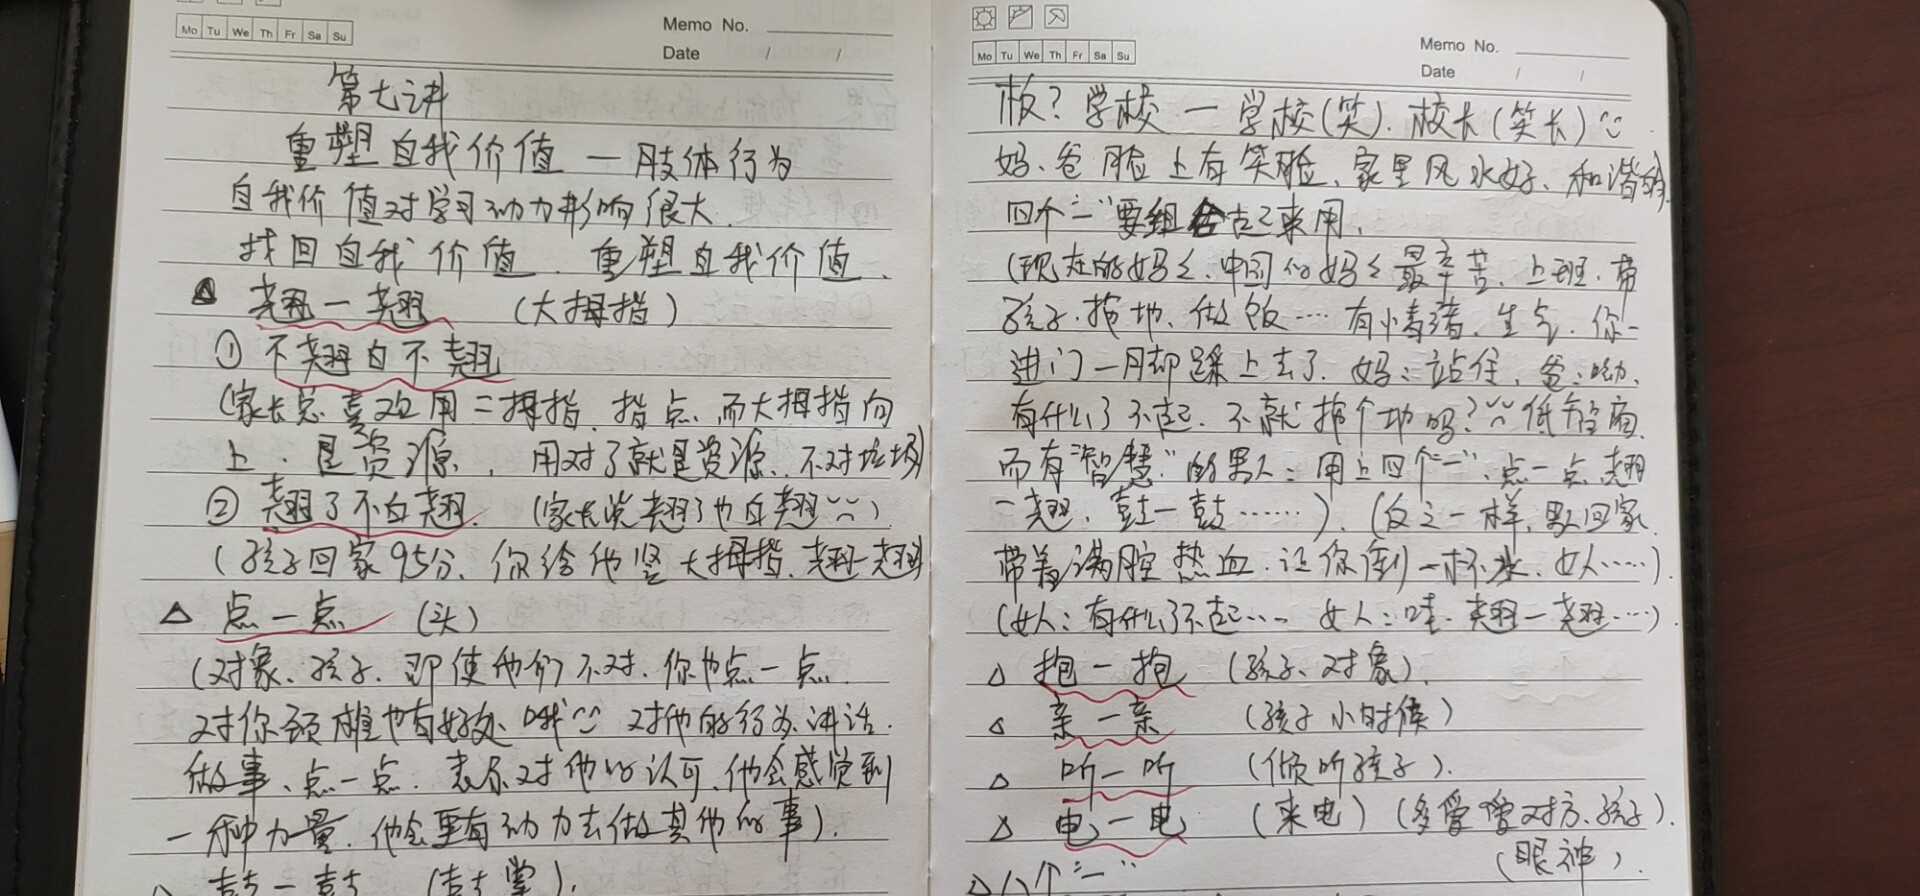 Mo Tu We Th Fr Sa Su
Memo No.
Date / /
第七讲
重塑自我价值 — 肢体行为
自我价值对学习动力影响很大.
找回自我价值. 重塑自我价值.
△ 翘一翘 (大拇指)
① 不翘白不翘
(家长总喜欢用二拇指、指点、而大拇指向
上、是资源, 用对了就是资源、不对垃圾)
② 翘了不白翘. (家长说翘了也白翘)
(孩子回家95分、你给他竖大拇指、翘一翘)
△ 点一点 (头)
(对象、孩子、即使他们不对、你也点一点
对你颈椎也有好处、哦 对他的行为、讲话.
做事、点一点. 表示对他的认可、他会感觉到
一种力量. 他会更有动力去做其他的事).
鼓一鼓 (鼓掌).
Mo Tu We Th Fr Sa Su
Memo No.
Date / /
板? 学校 — 学校(笑). 校长(笑长)
妈、爸脸上有笑脸、家里风水好、和谐的
四个"一"要组合起来用.
(现在的妈妈、中国的妈妈最辛苦、上班、带
孩子、拖地、做饭…. 有情绪、生气. 你一
进门一脚踩上去了. 妈:站住、爸:呦、
有什么了不起、不就拖个地吗? 低智商.
而有"智慧"的男人:用上四个"一"、点一点、翘
一翘、鼓一鼓……). (反之一样, 男人回家
带着满腔热血、让你倒一杯水、女人……).
(女人:有什么了不起…. 女人:哇、翘一翘…)
△ 抱一抱 (孩子、对象).
△ 亲一亲 (孩子小时候)
△ 听一听 (倾听孩子).
△ 电一电 (来电) (多爱爱对方、孩子).
(眼神).
八个"一"